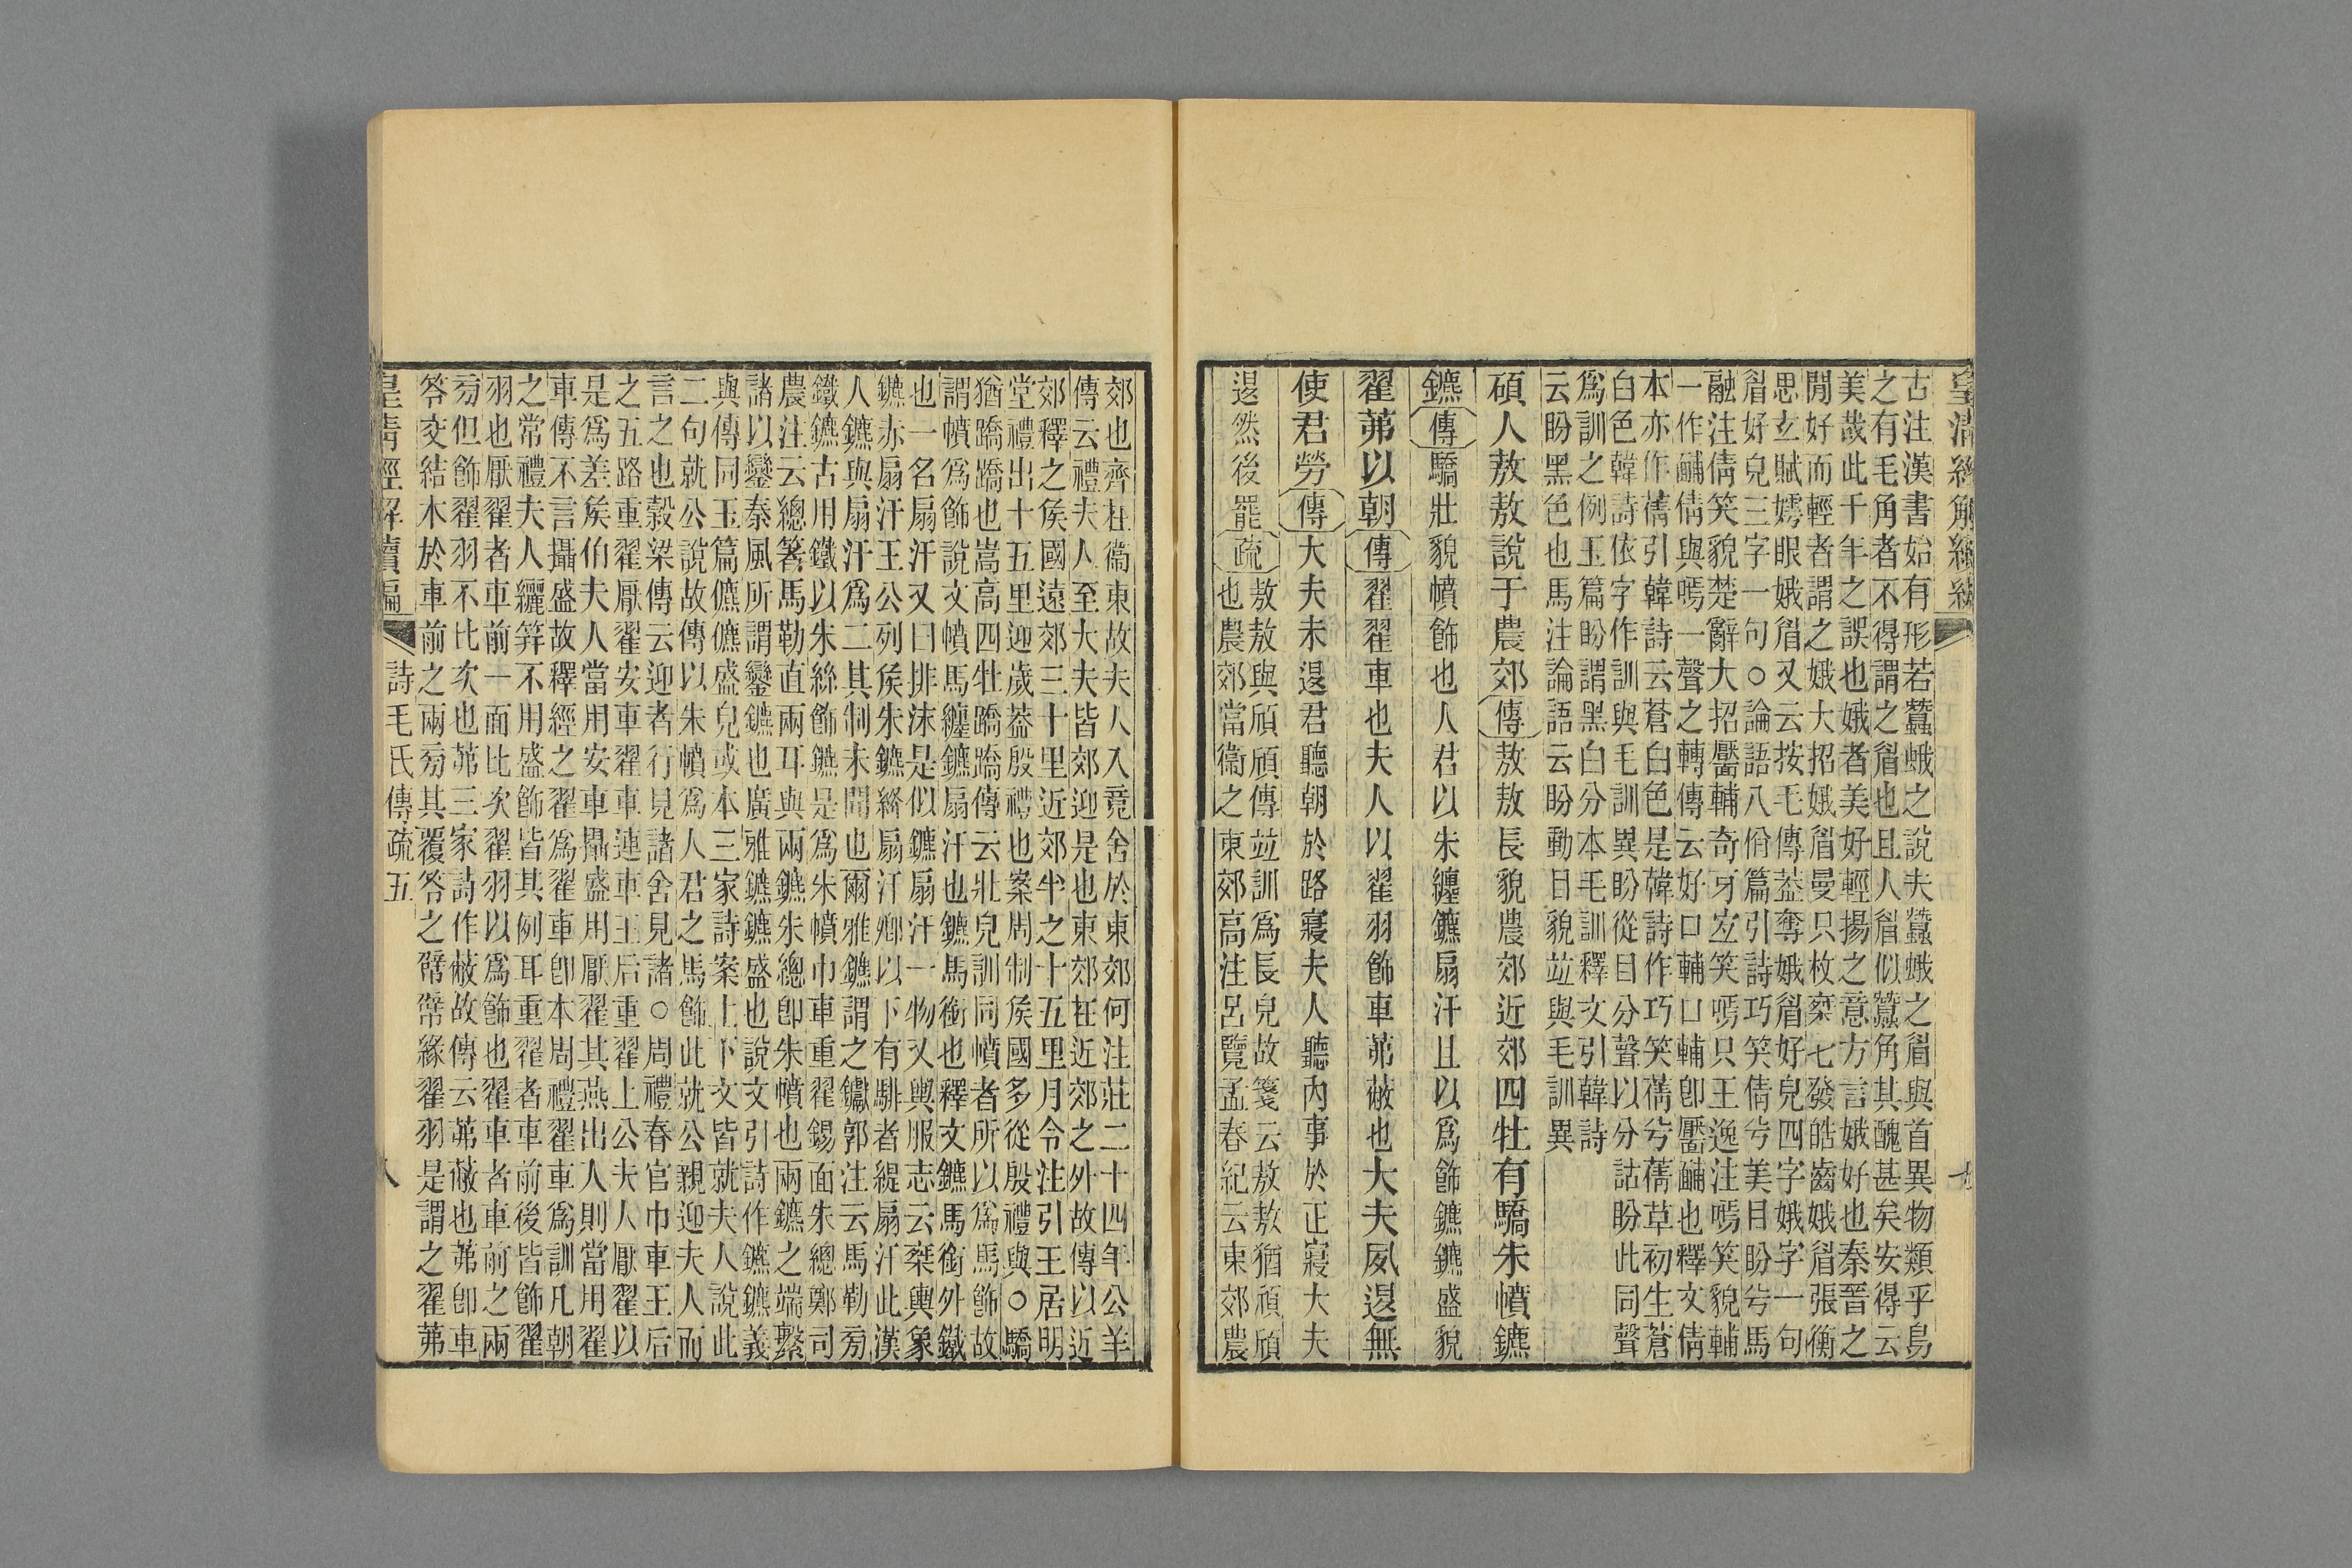 皇清經解續編
古注漢書始有形若蠶蛾之說夫蠶蛾之眉與首異物類乎鳥
之有毛角者不得謂之眉也且人眉似蠶角其醜甚矣安得云
美哉此千年之誤也娥者美好輕揚之意方言娥好也秦晉之
閒好而輕者謂之娥大招娥眉曼只枚椉七發皓齒娥眉張衡
思玄賦嫮眼娥眉又云按毛傳葢奪娥眉好皃四字娥字一句
眉好皃三字一句○論語八佾篇引詩巧笑倩兮美目盼兮馬
融注倩笑貌楚辭大招靨輔奇牙宐笑嗎只王逸注嗎笑貌輔
一作酺倩與嗎一聲之轉傳云好口輔口輔卽靨酺也釋文倩
本亦作蒨引韓詩云蒼白色是韓詩作巧笑蒨兮蒨草初生蒼
白色韓詩依字作訓與毛訓異盼從目分聲以分詁盼此同聲
爲訓之例玉篇盼謂黑白分本毛訓釋文引韓詩
云盼黑色也馬注論語云盼動目貌竝與毛訓異
碩人敖敖說于農郊傳敖敖長貌農郊近郊四牡有驕朱幩鑣
鑣傳驕壯貌幩飾也人君以朱纏鑣扇汗且以爲飾鑣鑣盛貌
翟茀以朝傳翟翟車也夫人以翟羽飾車茀蔽也大夫夙退無
使君勞傳大夫未退君聽朝於路寢夫人聽內事於正寢大夫
退然後罷疏敖敖與頎頎傳竝訓爲長皃故箋云敖敖猶頎頎
也農郊當衞之東郊高注呂覽孟春紀云東郊農
郊也齊在衞東故夫人入竟舍於東郊何注莊二十四年公羊
傳云禮夫人至大夫皆郊迎是也東郊在近郊之外故傳以近
郊釋之矦國遠郊三十里近郊半之十五里月令注引王居明
堂禮出十五里迎歲葢殷禮也案周制矦國多從殷禮與○驕
猶蹻蹻也嵩高四牡蹻蹻傳云壯皃訓同幩者所以爲馬飾故
謂幩爲飾說文幩馬纏鑣扇汗也鑣馬銜也釋文鑣馬銜外鐵
也一名扇汗又曰排沫是似鑣扇汗一物又輿服志云椉輿象
鑣赤扇汗王公列矦朱鑣絳扇汗卿以下有騑者緹扇汗此漢
人鑣與扇汗爲二其制未聞也爾雅鑣謂之钀郭注云馬勒旁
鐵鑣古用鐵以朱絲飾鑣是爲朱幩巾車重翟錫面朱總鄭司
農注云總箸馬勒直兩耳與兩鑣朱總卽朱幩也兩鑣之端繫
諸以鑾秦風所謂鑾鑣也廣雅鑣鑣盛也說文引詩作鑣鑣義
與傳同玉篇儦儦盛皃或本三家詩案上下文皆就夫人說此
二句就公說故傳以朱幩爲人君之馬飾此就公親迎夫人而
言之也穀梁傳云迎者行見諸舍見諸○周禮春官巾車王后
之五路重翟厭翟安車翟車連車王后重翟上公夫人厭翟以
是爲差矦伯夫人當用安車攝盛用厭翟其燕出人則當用翟
車傳不言攝盛故釋經之翟爲翟車卽本周禮翟車爲訓凡朝
之常禮夫人纚笄不用盛飾皆其例耳重翟者車前後皆飾翟
羽也厭翟者車前一面比次翟羽以爲飾也翟車者車前之兩
旁但飾翟羽不比次也茀三家詩作蔽故傳云茀蔽也茀卽車
笭交結木於車前之兩旁其覆笭之幦幦緣翟羽是謂之翟茀
皇清經解續編 詩毛氏傳疏五 八